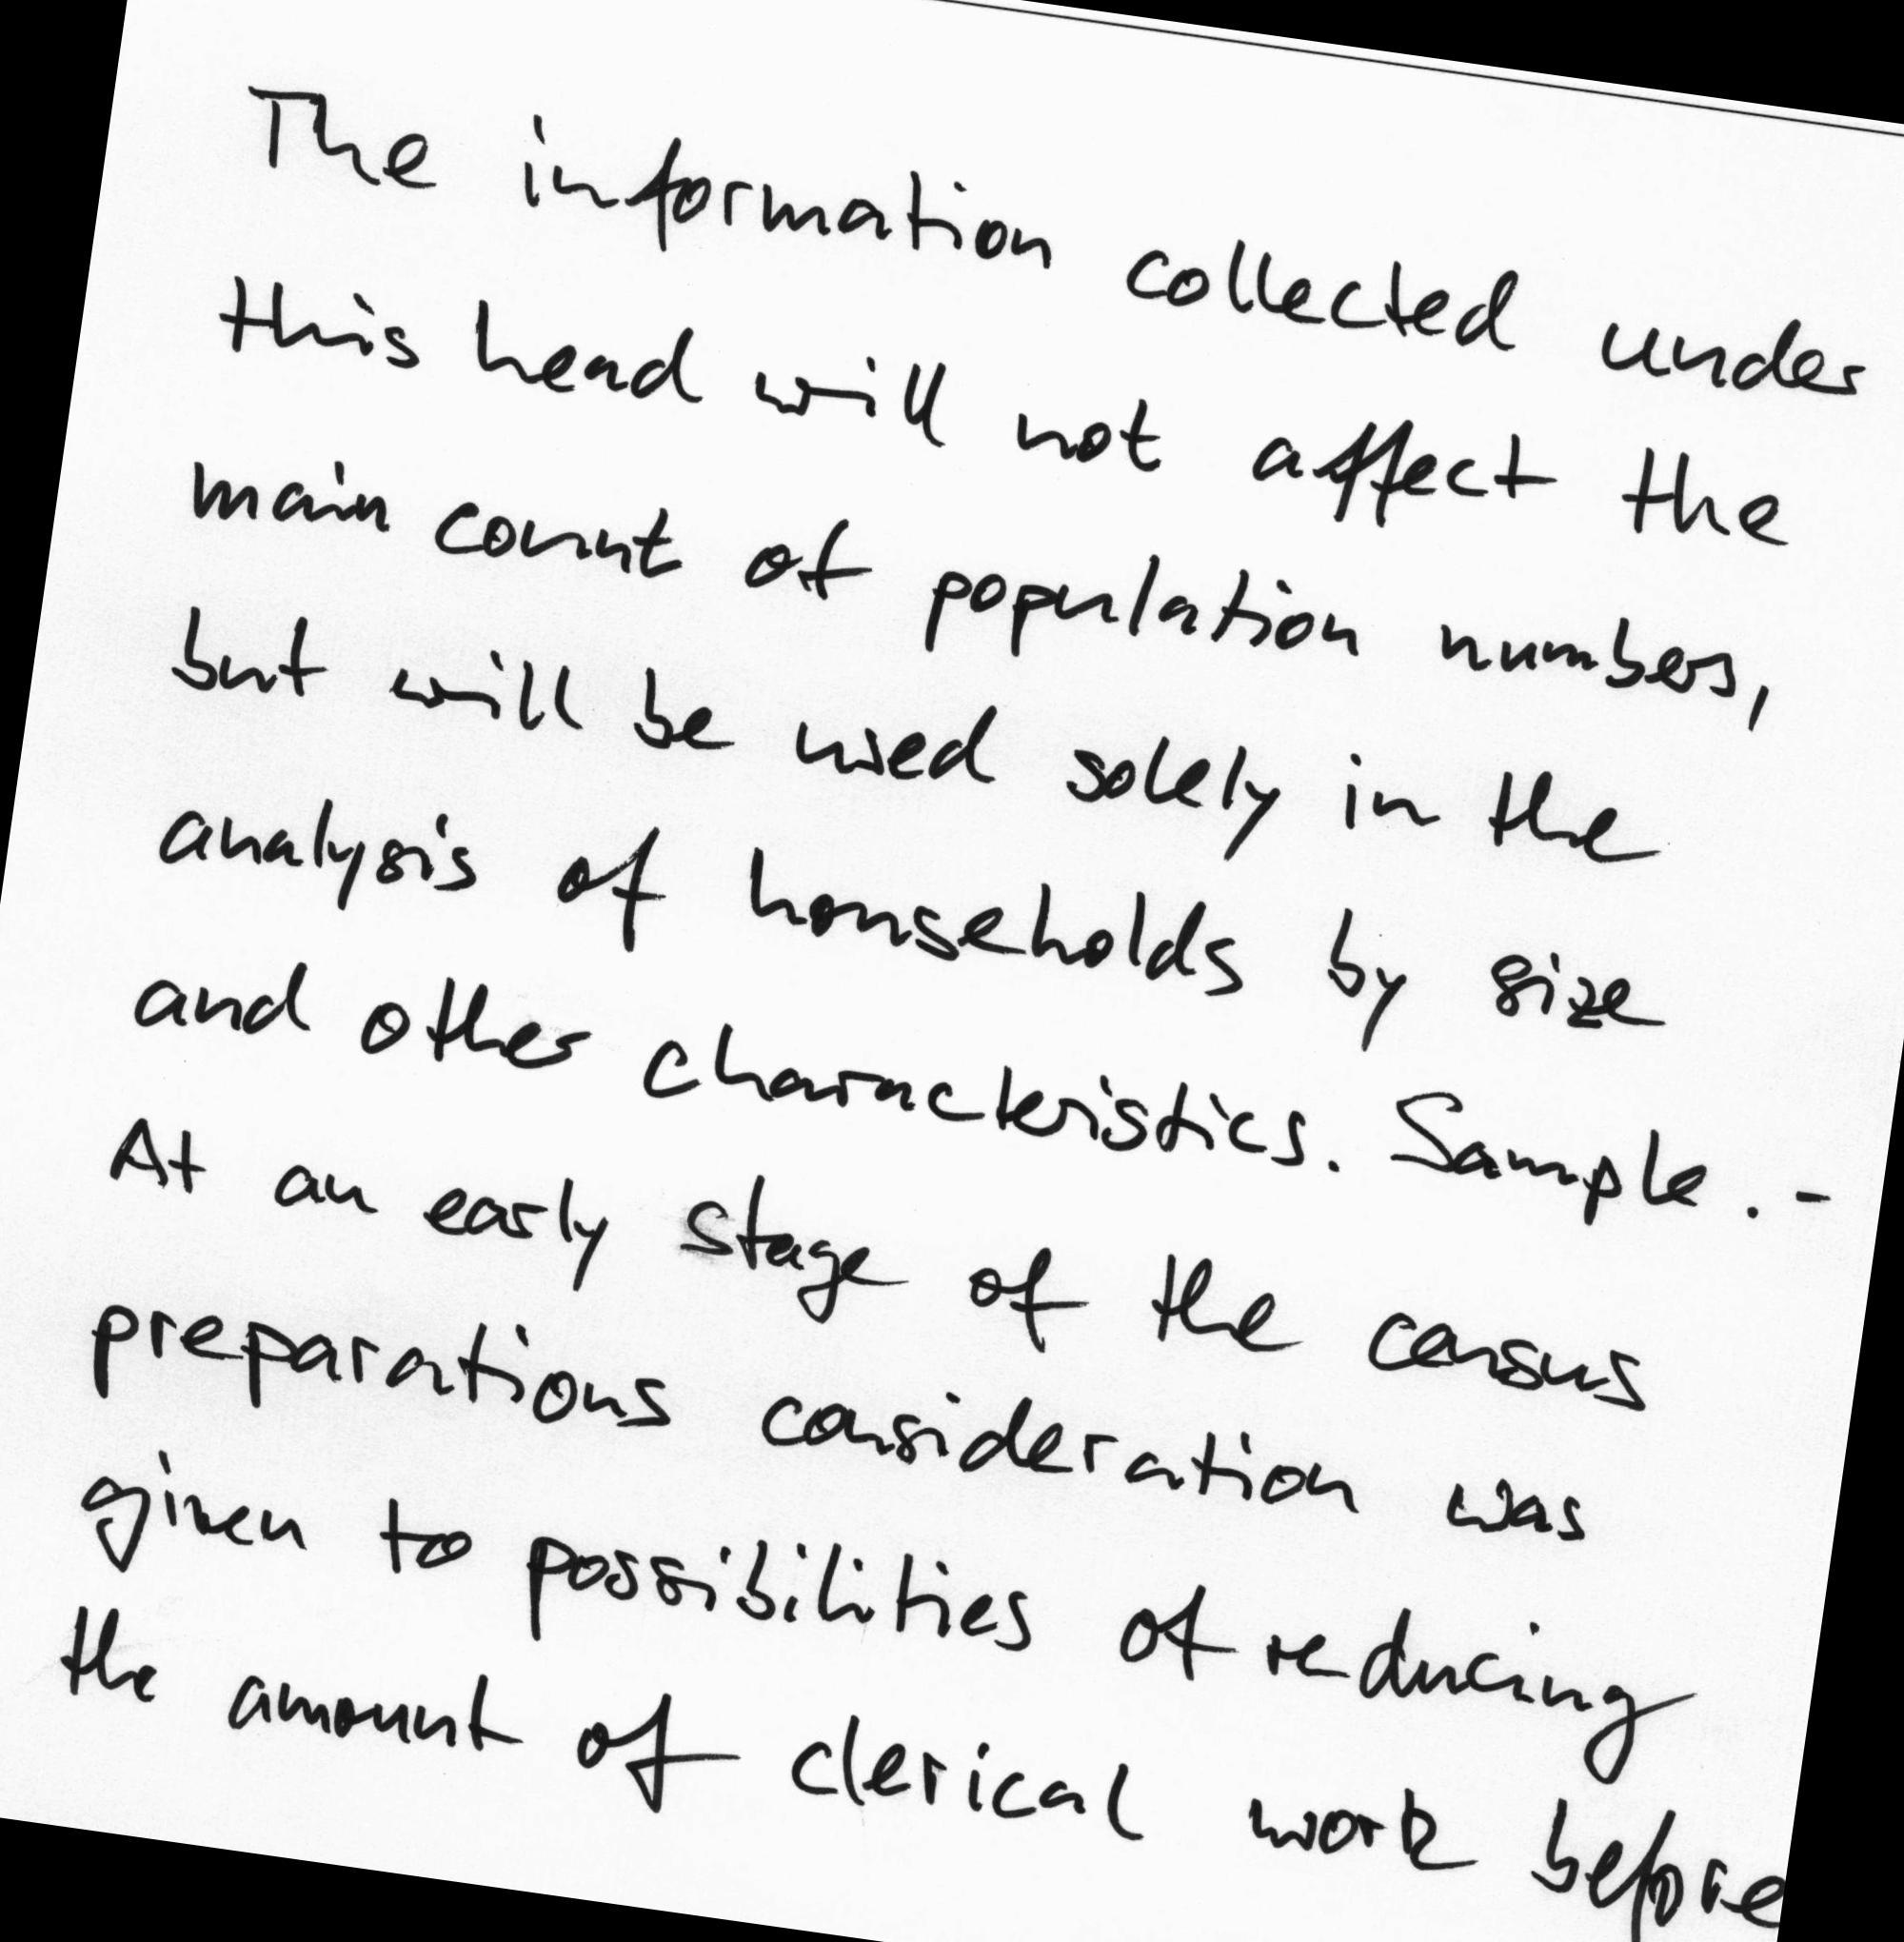 The information collected under
this head will not affect the
main count of population numbers,
but will be used solely in the
analysis of households by size
and other characteristics. Sample. -
At an early stage of the census
preparations consideration was
given to possibilities of reducing
the amount of clerical work before